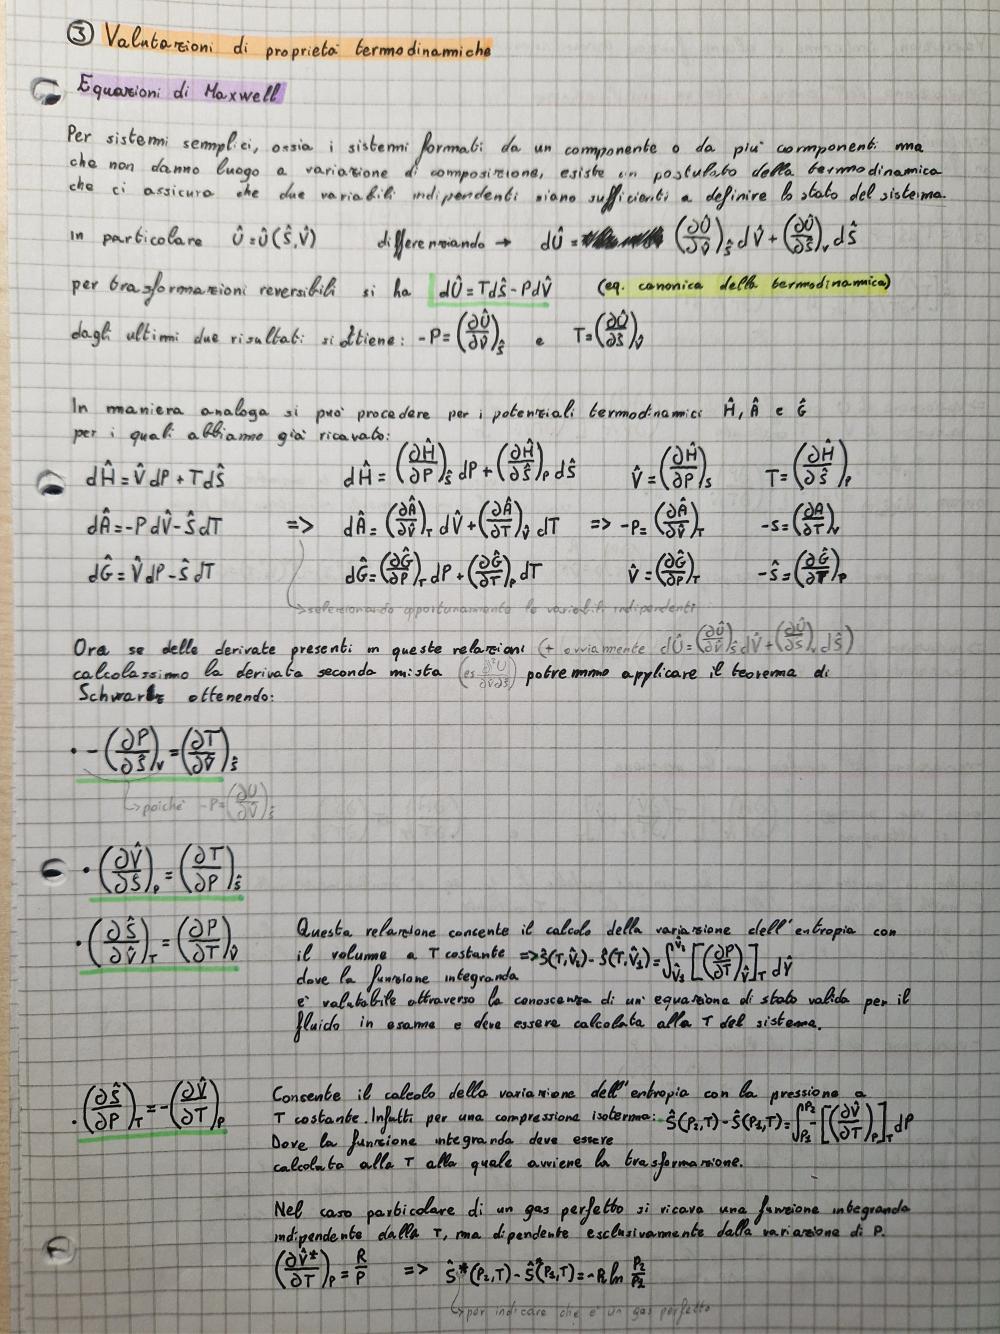 ③ Valutazioni di proprietà termodinamiche
Equazioni di Maxwell
Per sistemi semplici, ossia i sistemi formati da un componente o da più componenti ma
che non danno luogo a variazione di composizione, esiste un postulato della termodinamica
che ci assicura che due variabili indipendenti siano sufficienti a definire lo stato del sistema.
In particolare Û=Û(Ŝ,V̂) differenziando → dÛ = (∂Û/∂V̂)_Ŝ dV̂ + (∂Û/∂Ŝ)_V dŜ
per trasformazioni reversibili si ha dÛ=TdŜ-PdV̂ (eq. canonica della termodinamica)
dagli ultimi due risultati si ottiene: -P=(∂Û/∂V̂)_Ŝ e T=(∂Û/∂Ŝ)_V̂
In maniera analoga si può procedere per i potenziali termodinamici Ĥ, Â e Ĝ
per i quali abbiamo già ricavato:
dĤ=V̂dP+TdŜ dĤ=(∂Ĥ/∂P)_Ŝ dP+(∂Ĥ/∂Ŝ)_P dŜ V̂=(∂Ĥ/∂P)_S T=(∂Ĥ/∂Ŝ)_P
dÂ=-PdV̂-ŜdT => dÂ=(∂Â/∂V̂)_T dV̂+(∂Â/∂T)_V̂ dT => -P=(∂Â/∂V̂)_T -S=(∂A/∂T)_V
dĜ=V̂dP-ŜdT dĜ=(∂Ĝ/∂P)_T dP+(∂Ĝ/∂T)_P dT V̂=(∂Ĝ/∂P)_T -Ŝ=(∂Ĝ/∂T)_P
↳ selezionando opportunamente le variabili indipendenti
Ora se delle derivate presenti in queste relazioni (+ ovviamente dÛ=(∂Û/∂V̂)_Ŝ dV̂+(∂Û/∂Ŝ)_V dŜ)
calcolassimo la derivata seconda mista (es ∂²U/∂V̂∂Ŝ) potremmo applicare il teorema di
Schwartz ottenendo:
• -(∂P/∂Ŝ)_V=(∂T/∂V̂)_Ŝ
↳ poiché -P=(∂U/∂V̂)_Ŝ
• (∂V̂/∂Ŝ)_P=(∂T/∂P)_Ŝ
• (∂Ŝ/∂V̂)_T=(∂P/∂T)_V̂ Questa relazione consente il calcolo della variazione dell'entropia con
il volume a T costante => Ŝ(T,V̂₂)-Ŝ(T,V̂₁)=∫_V̂₁^V̂₂ [(∂P/∂T)_V̂]_T dV̂
dove la funzione integranda
è valutabile attraverso la conoscenza di un'equazione di stato valida per il
fluido in esame e deve essere calcolata alla T del sistema.
• (∂Ŝ/∂P)_T=-(∂V̂/∂T)_P Consente il calcolo della variazione dell'entropia con la pressione a
T costante. Infatti per una compressione isoterma: Ŝ(P₂,T)-Ŝ(P₁,T)=∫_P₁^P₂ -[(∂V̂/∂T)_P]_T dP
Dove la funzione integranda deve essere
calcolata alla T alla quale avviene la trasformazione.
Nel caso particolare di un gas perfetto si ricava una funzione integranda
indipendente dalla T, ma dipendente esclusivamente dalla variazione di P.
(∂V̂*/∂T)_P=R/P => Ŝ*(P₂,T)-Ŝ*(P₁,T)=-R ln P₂/P₁
↳ per indicare che è un gas perfetto